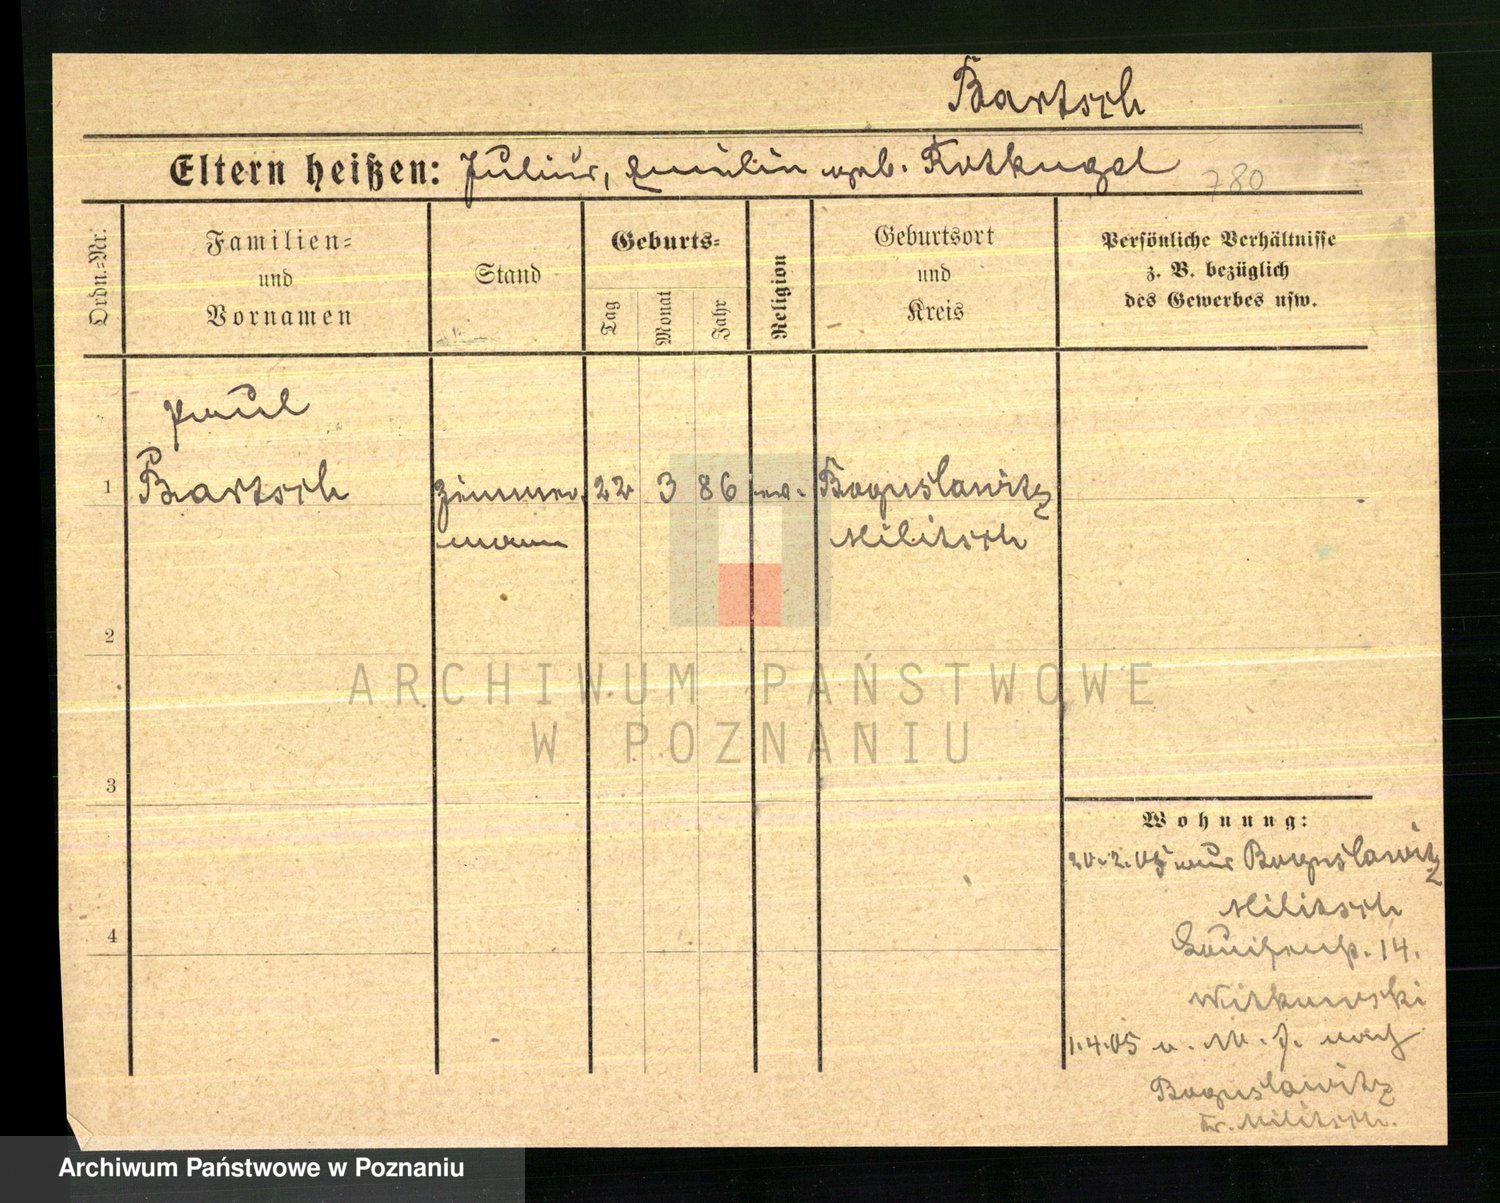 Bartsch
Eltern heißen: Julius, Emilie geb. Rotkugel
780
Ordn.-Nr.
Familien- und Vornamen
Stand
Geburts-
Tag
Monat
Jahr
Religion
Geburtsort und Kreis
Persönliche Verhältnisse
z. B. bezüglich
des Gewerbes usw.
Paul
1 Bartsch Zimmer- 22 3 86 ev. Boguslawitz
mann Militsch
2
3
4
Wohnung:
20.2.05 aus Boguslawitz
Militsch
Louisenstr. 14.
Witkowski
1.4.05 n. M. J. nach
Boguslawitz
Kr. Militsch.
ARCHIWUM PAŃSTWOWE
W POZNANIU
Archiwum Państwowe w Poznaniu